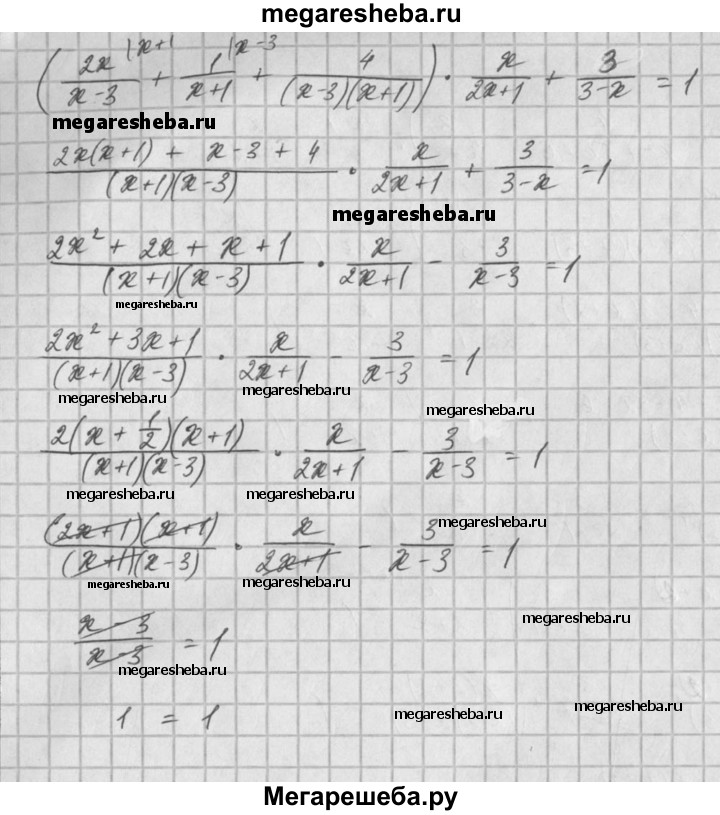 megaresheba.ru
(2x/(x-3) |x+1 + 1/(x+1) |x-3 + 4/((x-3)(x+1))) · x/(2x+1) + 3/(3-x) = 1
megaresheba.ru
(2x(x+1) + x-3+4)/((x+1)(x-3)) · x/(2x+1) + 3/(3-x) = 1
megaresheba.ru
(2x² + 2x + x + 1)/((x+1)(x-3)) · x/(2x+1) - 3/(x-3) = 1
megaresheba.ru
(2x² + 3x + 1)/((x+1)(x-3)) · x/(2x+1) - 3/(x-3) = 1
megaresheba.ru megaresheba.ru megaresheba.ru
2(x + 1/2)(x+1)/((x+1)(x-3)) · x/(2x+1) - 3/(x-3) = 1
megaresheba.ru megaresheba.ru megaresheba.ru
(2x+1)(x+1)/((x+1)(x-3)) · x/(2x+1) - 3/(x-3) = 1
megaresheba.ru megaresheba.ru megaresheba.ru
(x-3)/(x-3) = 1
megaresheba.ru megaresheba.ru
1 = 1
megaresheba.ru megaresheba.ru
Мегарешеба.ру